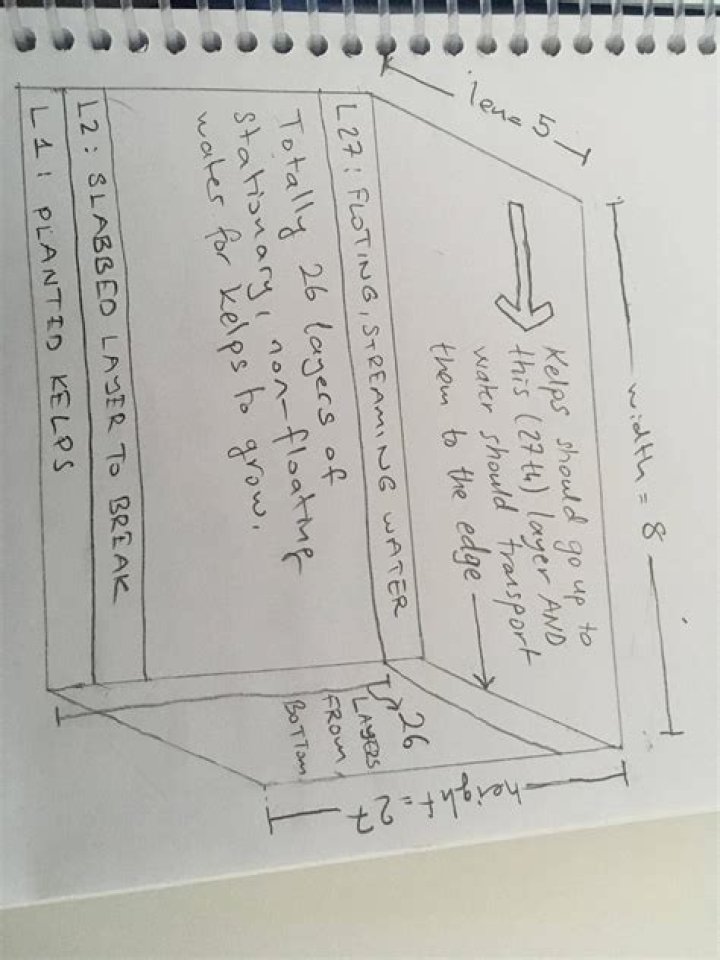 leng 5
width = 8
Kelps should go up to
this (27th) layer AND
water should transport
them to the edge
L27: FLOTING, STREAMING WATER
Totally 26 layers of
stationary, non-floating
water for kelps to grow.
L2: SLABBED LAYER TO BREAK
L1: PLANTED KELPS
26
LAYERS
FROM
BOTTOM
height = 27